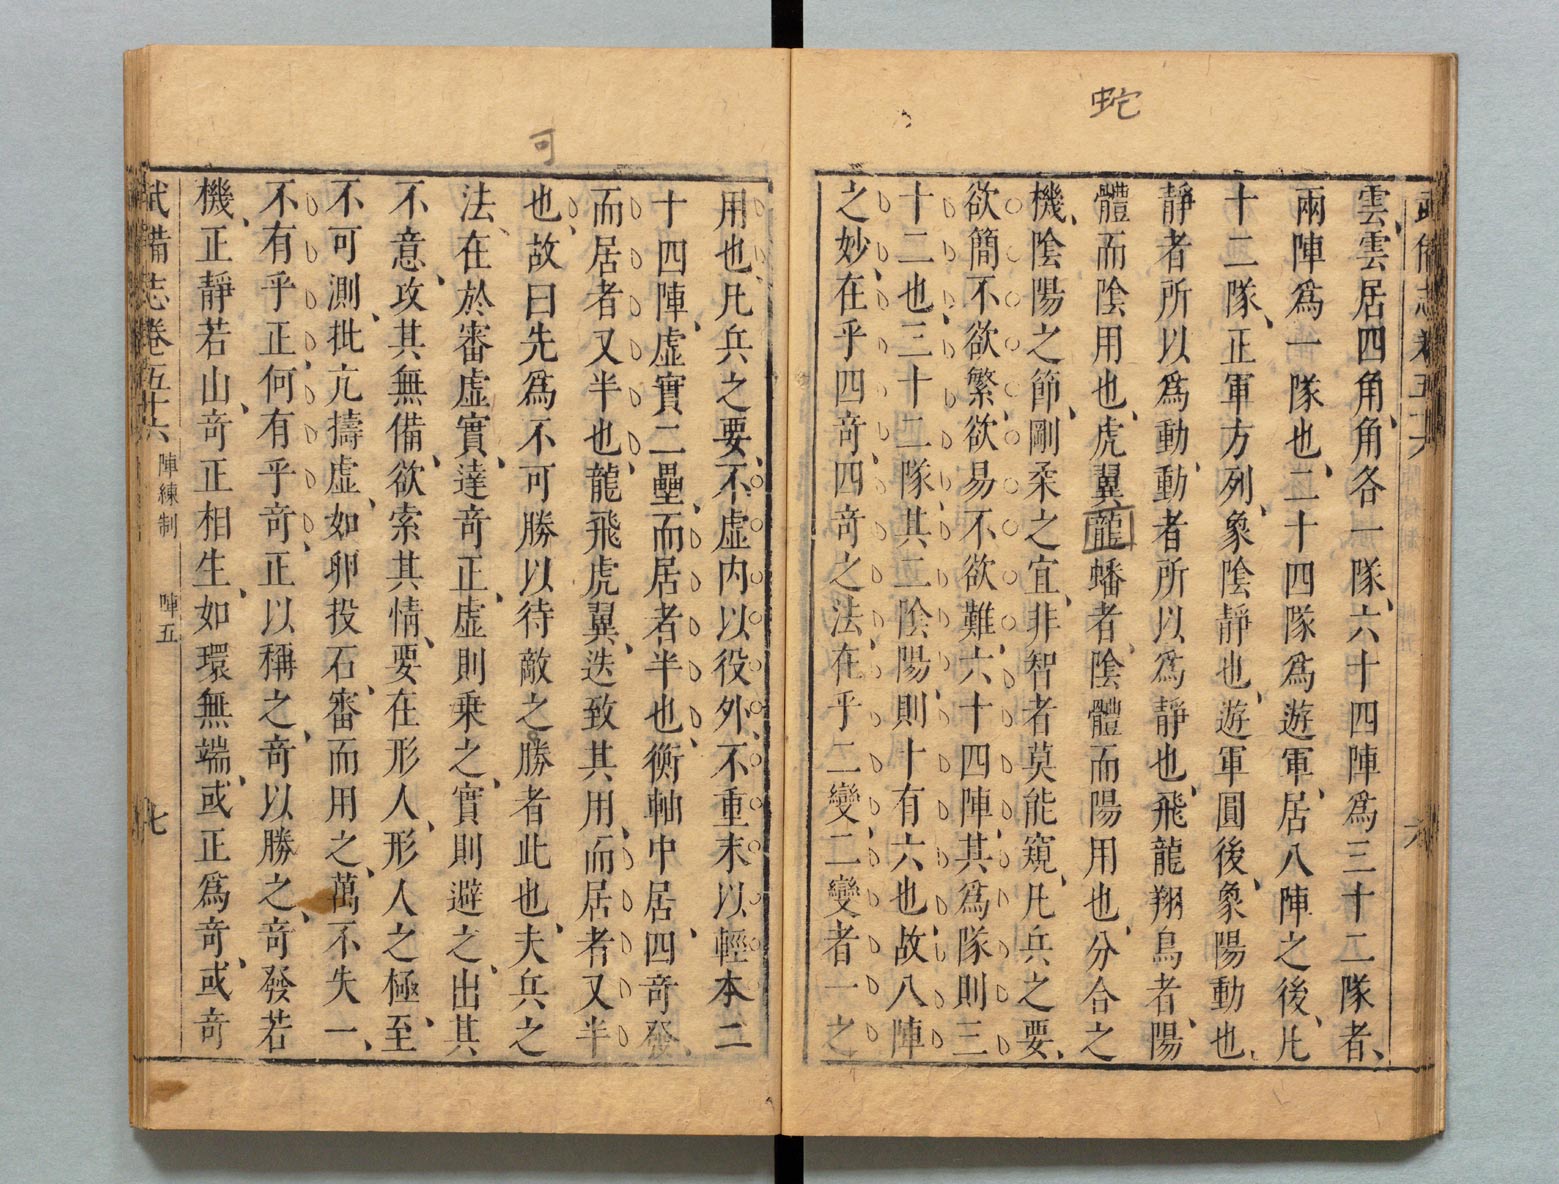 蛇
雲、雲居四角、角各一隊、六十四陣爲三十二隊者、
兩陣爲一隊也、二十四隊爲遊軍、居八陣之後、凡
十二隊、正軍方列、象陰靜也、遊軍圓後、象陽動也、
靜者所以爲動、動者所以爲靜也、飛龍翔鳥者、陽
體而陰用也、虎翼龍蟠者、陰體而陽用也、分合之
機、陰陽之節、剛柔之宜、非智者莫能窺、凡兵之要、
欲簡不欲繁、欲易不欲難、六十四陣、其爲隊則三
十二也、三十二隊、其二陰陽、則十有六也、故八陣
之妙、在乎四竒、四竒之法、在乎二變、二變者一之
武備志卷五十六
六
可
用也、凡兵之要、不虚内以役外、不重末以輕本、二
十四陣、虚實二壘、而居者半也、衡軸中居、四竒發、
而居者又半也、龍飛虎翼、迭致其用、而居者又半
也、故曰先爲不可勝以待敵之勝者此也、夫兵之
法、在於審虚實、達竒正、虚則乗之、實則避之、出其
不意、攻其無備、欲索其情、要在形人、形人之極、至
不可測、批亢擣虚、如卵投石、審而用之、萬不失一、
不有乎正、何有乎竒、正以稱之、竒以勝之、竒發若
機、正靜若山、竒正相生、如環無端、或正爲竒、或竒
武備志卷五十六 陣練制 陣五 七